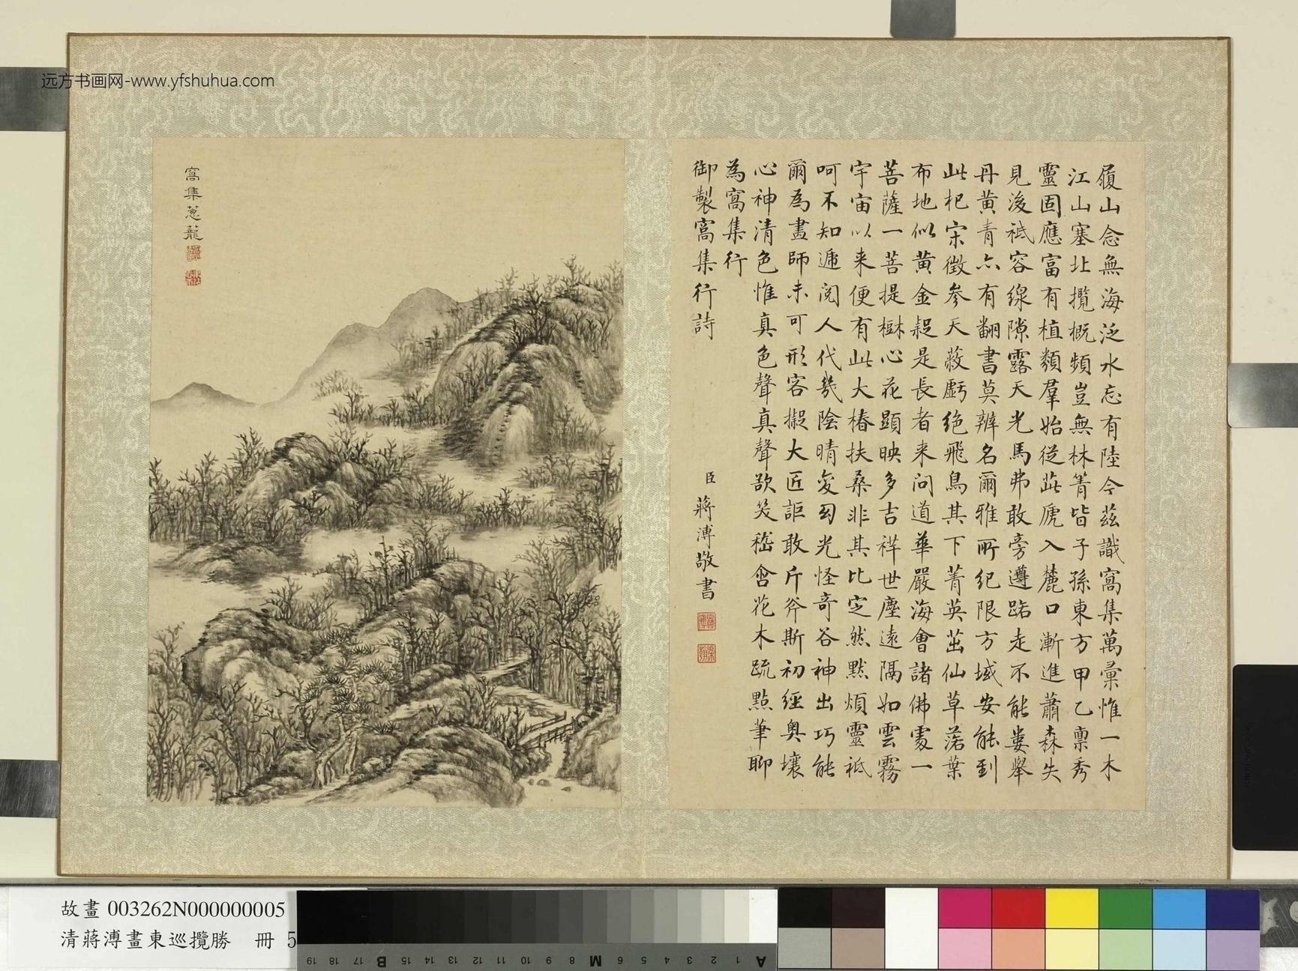 远方书画网-www.yfshuhua.com
窩集蔥蘢
履山念無海泛水忘有陸今茲識窩集萬彙惟一木
江山塞北攬概頻豈無林箐皆子孫東方甲乙稟秀
靈固應富有植類羣始從茈虒入麓口漸進蕭森失
見後祗容線隙露天光馬弗敢旁遵踣走不能婁舉
丹黃青亦有翻書莫辨名爾雅所紀限方域安能到
此杞宋徵參天蔽虧絕飛鳥其下菁英茁仙草落葉
布地似黃金疑是長者來問道華嚴海會諸佛處一
菩薩一菩提樹心花顯映多吉祥世塵遠隔如雲霧
宇宙以來便有此大椿扶桑非其比定然默煩靈祗
呵不知遞閱人代幾陰晴變幻光怪奇谷神出巧能
爾為畫師未可形容擬大匠詎敢斤斧斯初經奧壤
心神清色惟真色聲真聲欲笑嵇含花木疏點筆聊
為窩集行
御製窩集行詩
臣蔣溥敬書
故畫 003262N000000005
清蔣溥畫東巡攬勝 冊 5
19 18 17 B 15 14 13 12 11 10 9 8 M 6 5 4 3 2 1 A